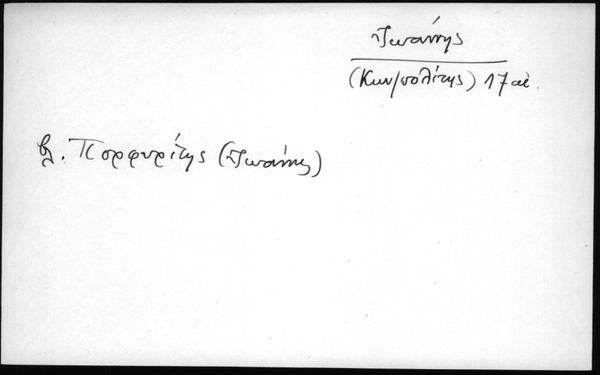 Ἰωάννης
(Κων/πολίτης) 17 αἰ.
βλ. Πορφυρίτης (Ἰωάννης)